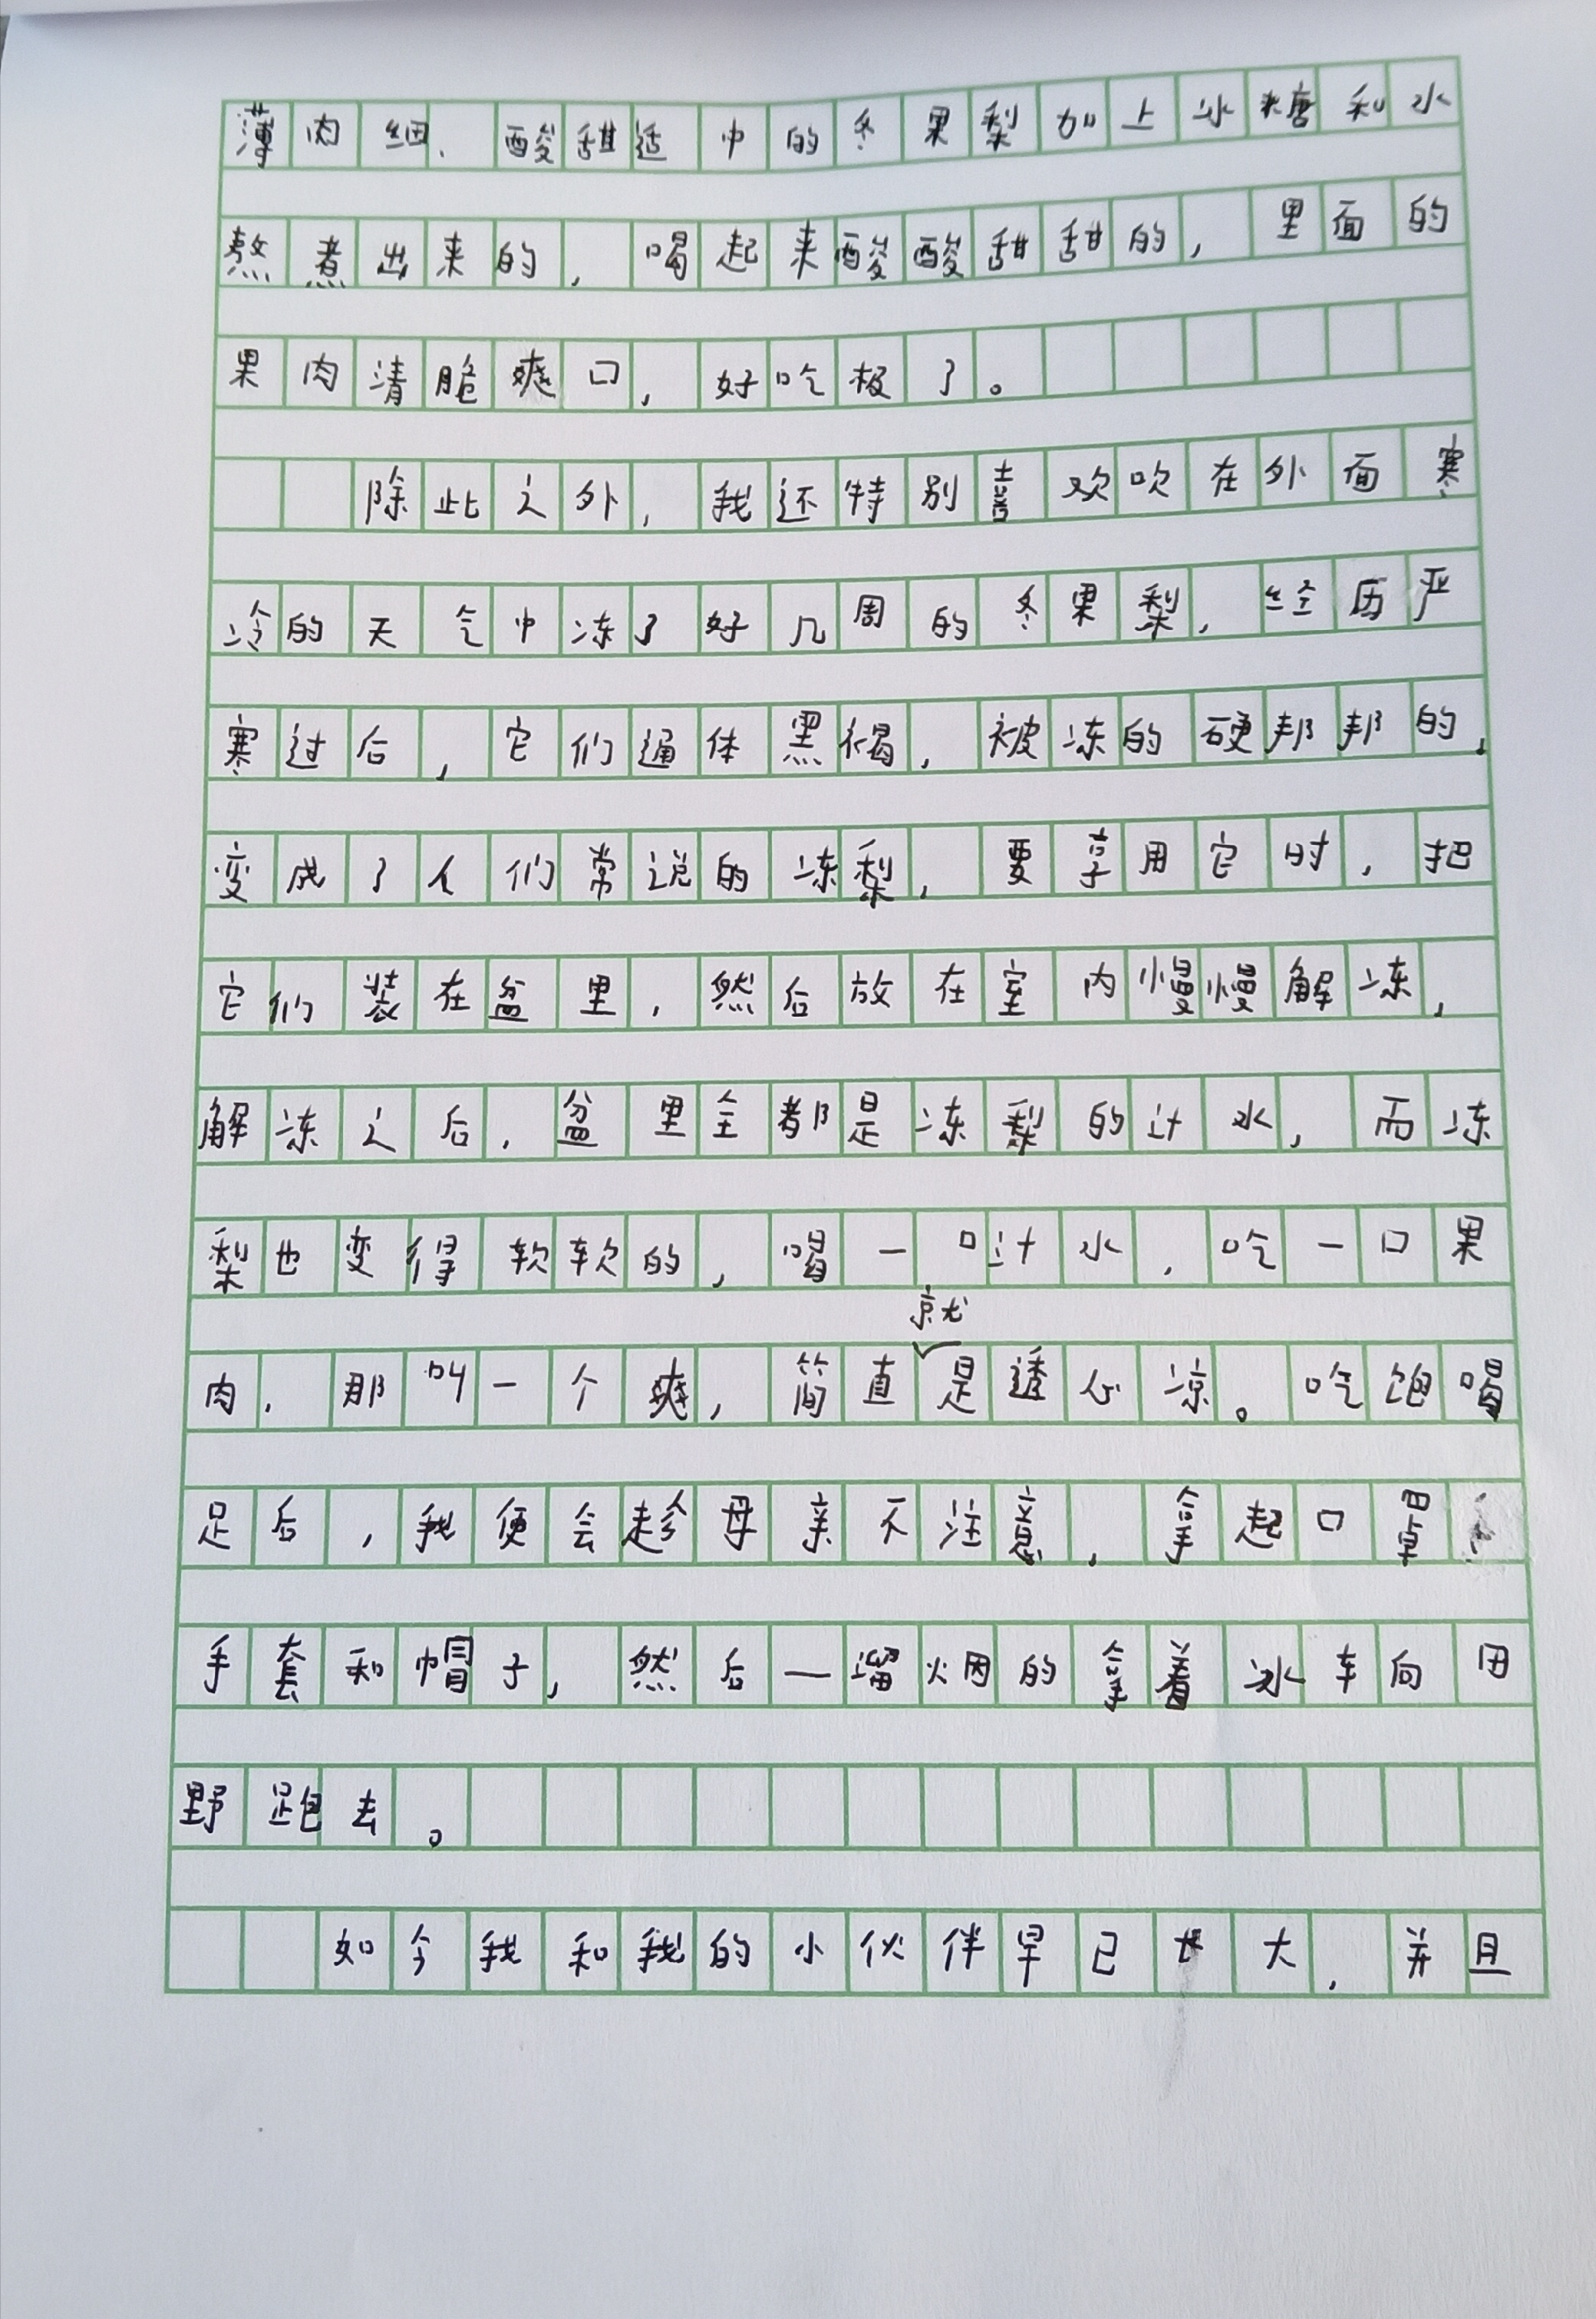 薄肉细、酸甜适中的冬果梨加上冰糖和水
熬煮出来的，喝起来酸酸甜甜的，里面的
果肉清脆爽口，好吃极了。
除此之外，我还特别喜欢吹在外面寒
冷的天气中冻了好几周的冬果梨，经历严
寒过后，它们通体黑褐，被冻的硬邦邦的，
变成了人们常说的冻梨，要享用它时，把
它们装在盆里，然后放在室内慢慢解冻，
解冻之后，盆里全都是冻梨的汁水，而冻
梨也变得软软的，喝一口汁水，吃一口果
肉，那叫一个爽，简直就是透心凉。吃饱喝
足后，我便会趁母亲不注意，拿起口罩
手套和帽子，然后一遛烟的拿着冰车向田
野跑去。
如今我和我的小伙伴早已长大，并且